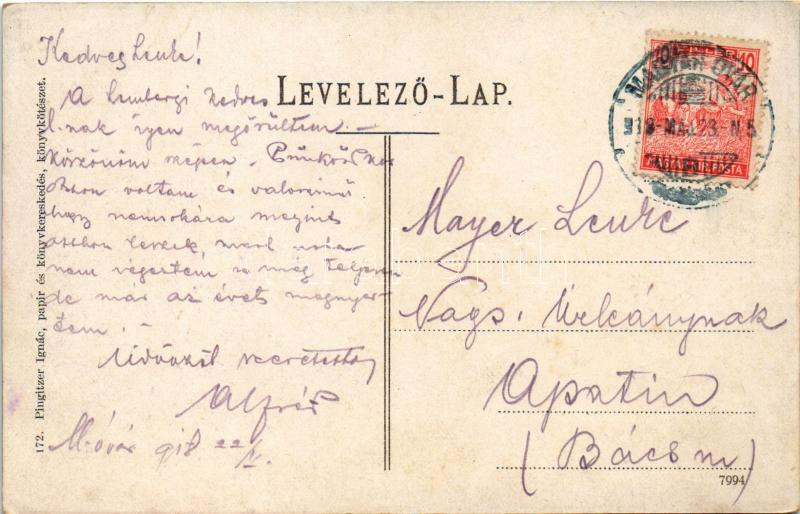 Kedves Lenke!
A lembergi kedves
l.-nak igen megörültem –
köszönöm szépen. Pünkös
otthon voltam és valoszinü
hogy nemsokára megint
otthon leszek, mert
nem végeztem még teljesen
de már az évet megnyer-
tem. –
Üdvözöl szeretettel
Alfréd
M.óvár 918 22/V.
LEVELEZŐ-LAP.
172. Pingitzer Ignác, papir és könyvkereskedés, könyvkötészet.
10 10
MAGYAR-ÓVÁR
918 MÁJ. 23. N 5
MAGYAR KIR. POSTA
Mayer Lenke
Nags. Úrleánynak
Apatin
(Bács m)
7994